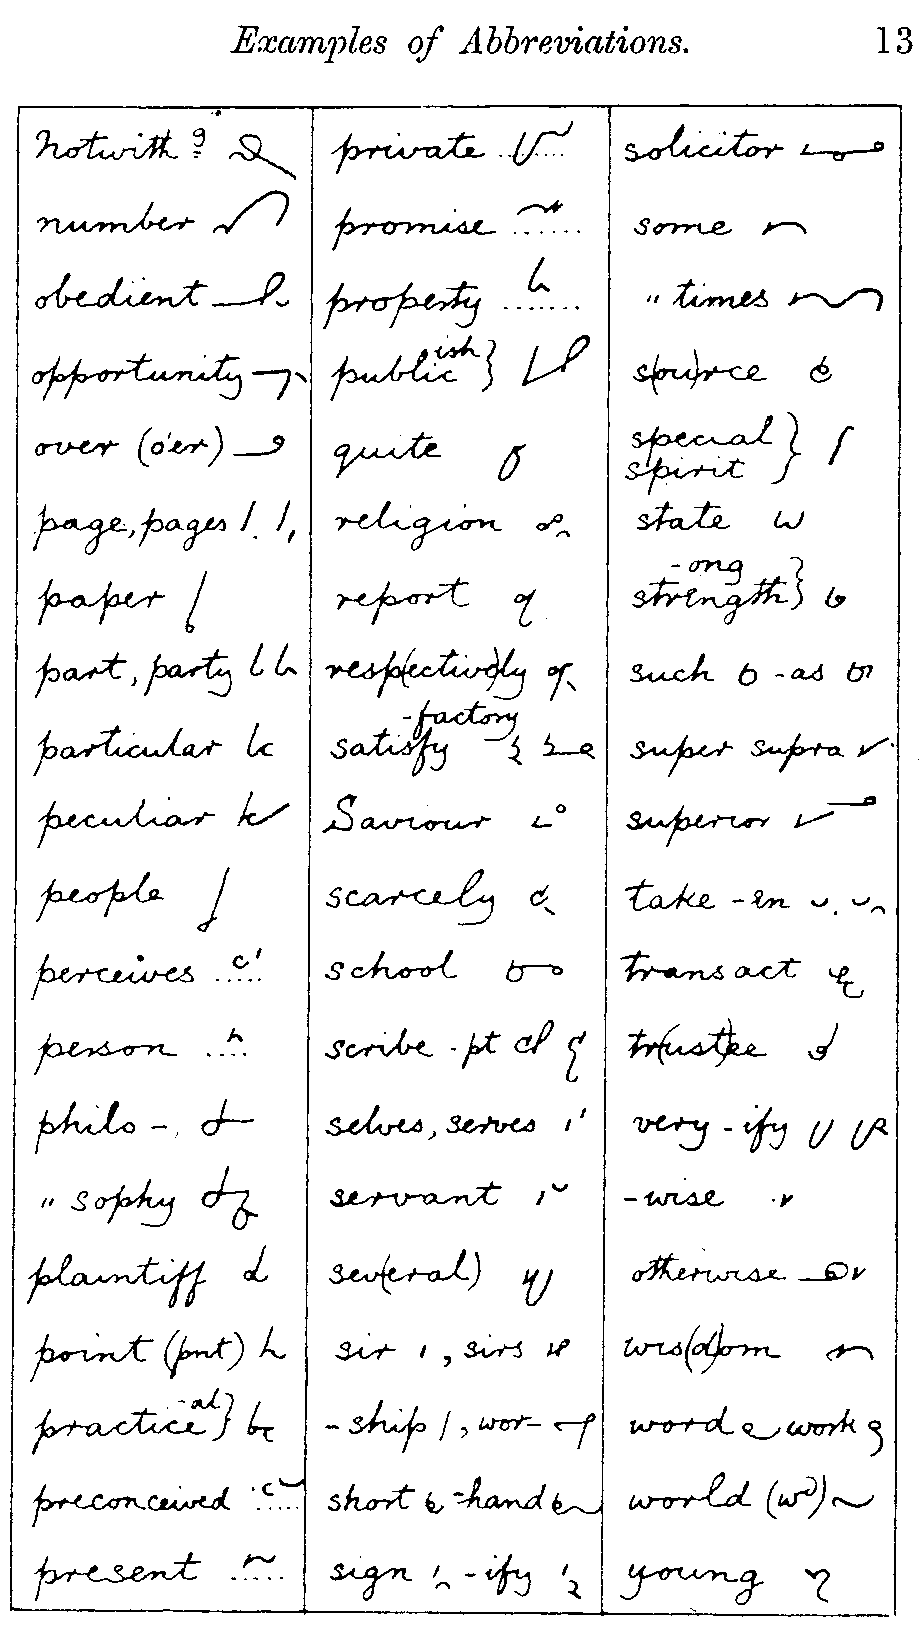 Examples of Abbreviations. 13
Notwithg
number
obedient
opportunity
over (o'er)
page, pages
paper
part, party
particular
peculiar
people
perceives
person
philo -
" sophy
plaintiff
point (pnt)
practice -al}
preconceived
present
private
promise
property
public ish}
quite
religion
report
resp(ective)ly
-factory
satisfy }
Saviour
scarcely
school
scribe -pt
selves, serves
servant
sev(eral)
sir , sirs
-ship , wor-
short -hand
sign -ify
solicitor
some
" times
s(ou)rce
special }
spirit
state
-ong
strength }
such -as
super supra
superior
take -en
transact
tr(ust)ee
very -ify
-wise
otherwise
wis(d)om
word work
world (wd)
young